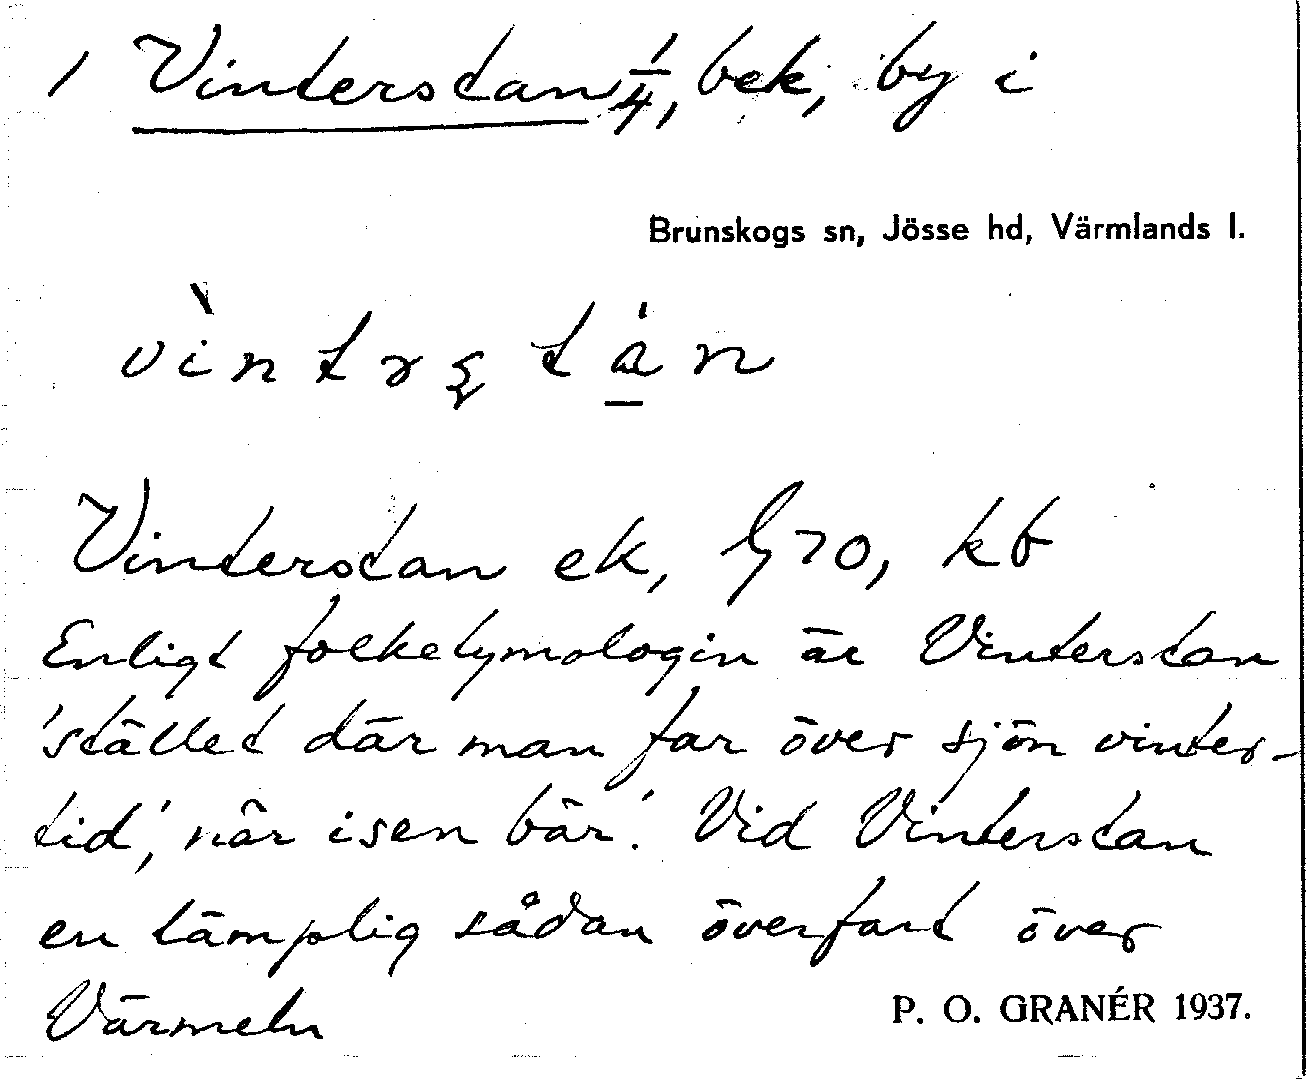 1 Vinterstan 1/4, bek, by i
Brunskogs sn, Jösse hd, Värmlands l.
vìntrs̨tán
Vinterstan ek, G70, kb
Enligt folketymologin är Vinterstan
'stället där man far över sjön vinter-
tid', när isen bär'. Vid Vinterstan
en lämplig sådan överfart över
Värmeln
P. O. GRANÉR 1937.